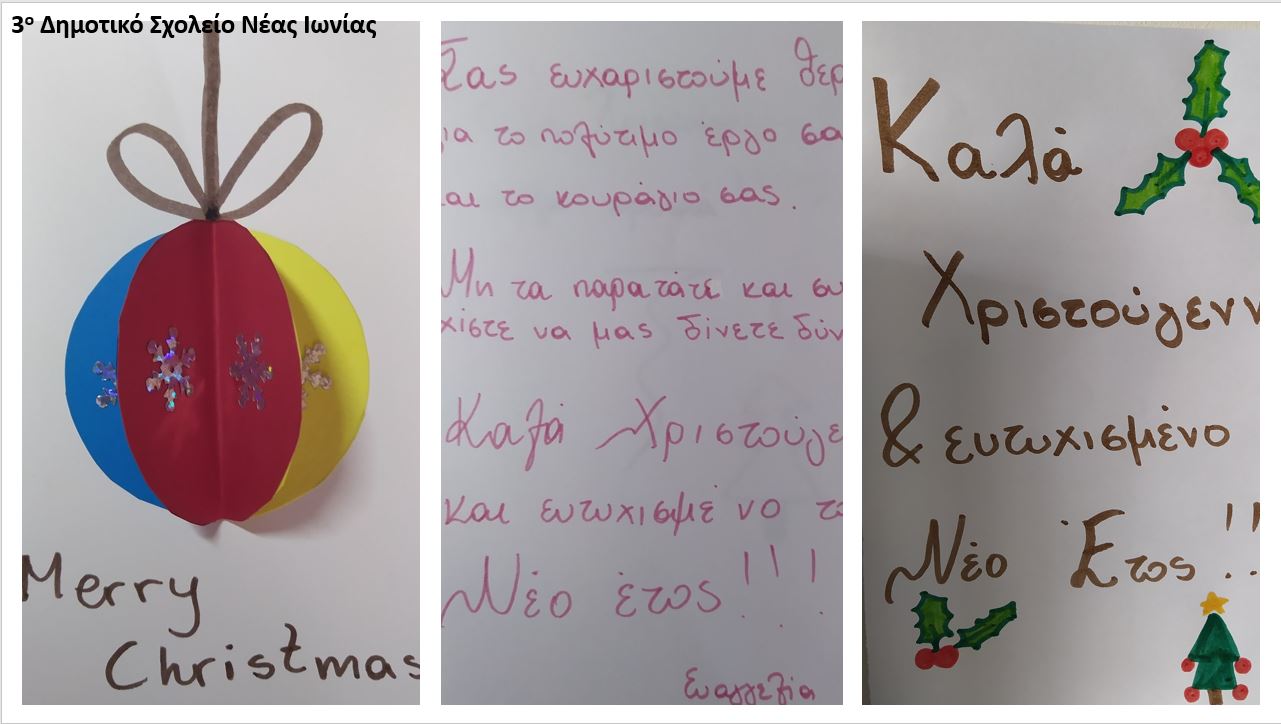 3ο Δημοτικό Σχολείο Νέας Ιωνίας
Merry
Christmas
Σας ευχαριστούμε θερ
ια το πολύτιμο έργο σα
αι το κουράγιο σας.
Μη τα παρατάτε και συ
χίστε να μας δίνετε δύν
Καλά Χριστούγε
και ευτυχισμένο το
Νέο έτος!!!
Ευαγγελία
Καλά
Χριστούγενν
& ευτυχισμένο
Νέο Έτος!!